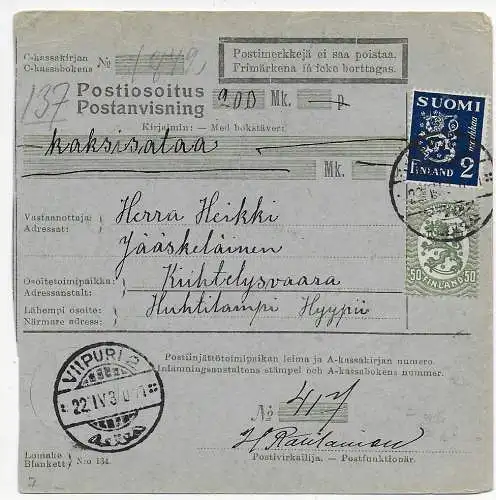 C-kassakirjan
C-kassabokens № 1949
Postimerkkejä ei saa poistaa.
Frimärkena få icke borttagas.
137
Postiosoitus
Postanvisning 200 Mk. — p
Kirjaimin: — Med bokstäver:
kaksisataa
Mk.
SUOMI
markkaa
FINLAND 2
50 FINLAND 50
Vastaanottaja:
Adressat:
Herra Heikki
Jääskeläinen
Osoitetoimipaikka:
Adressanstalt:
Kiihtelysvaara
Lähempi osoite:
Närmare adress:
Huhtilampi Hyypii
VIIPURI 2
22 IV 30
Postilnjättötoimipaikan leima ja A-kassakirjan numero.
Inlämningsanstaltens stämpel och A-kassabokens nummer.
№
H Rautanen
Postivirkailija. — Postfunktionär.
Lomake
Blankett N:o 134.